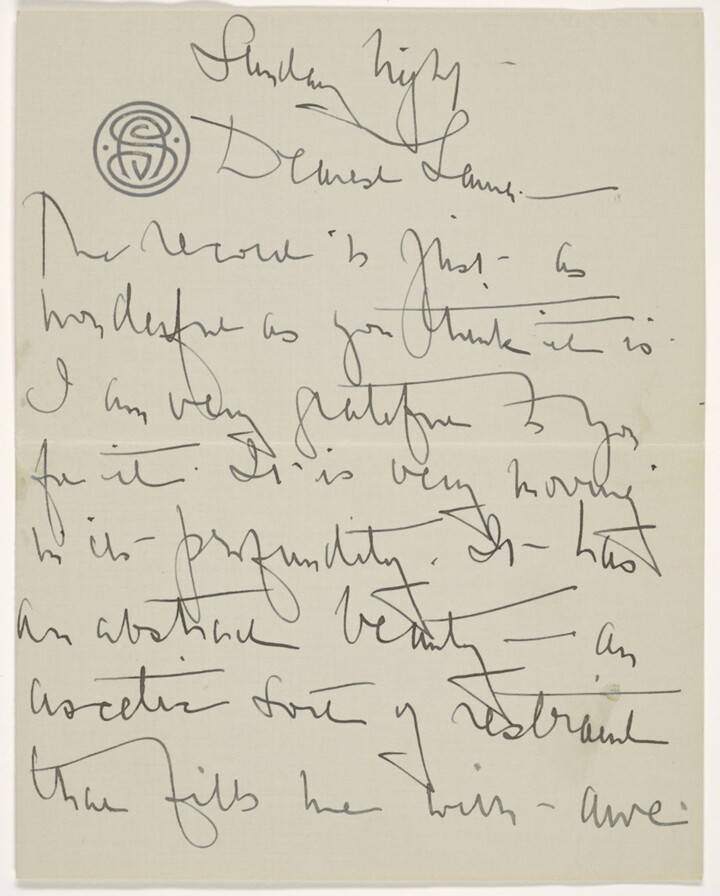 Sunday night -
Dearest
The record is just as
wonderful as you think it is.
I am very grateful to you
for it. It is very moving
in its profundity. It has
an abstract beauty — an
ascetic sort of restraint
that fills me with awe.